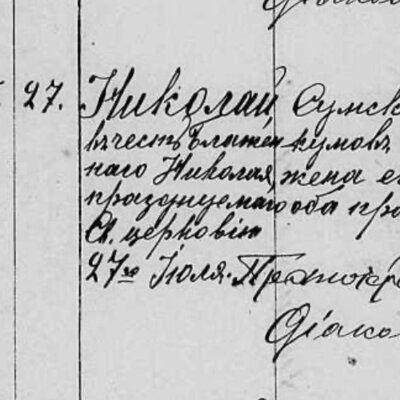 27. Николай Сумск
въ честь блажен кумовъ
наго Николая, жена е
празднуемаго оба пра
Св. церковію
27го Іюля. Протоіер
Діако